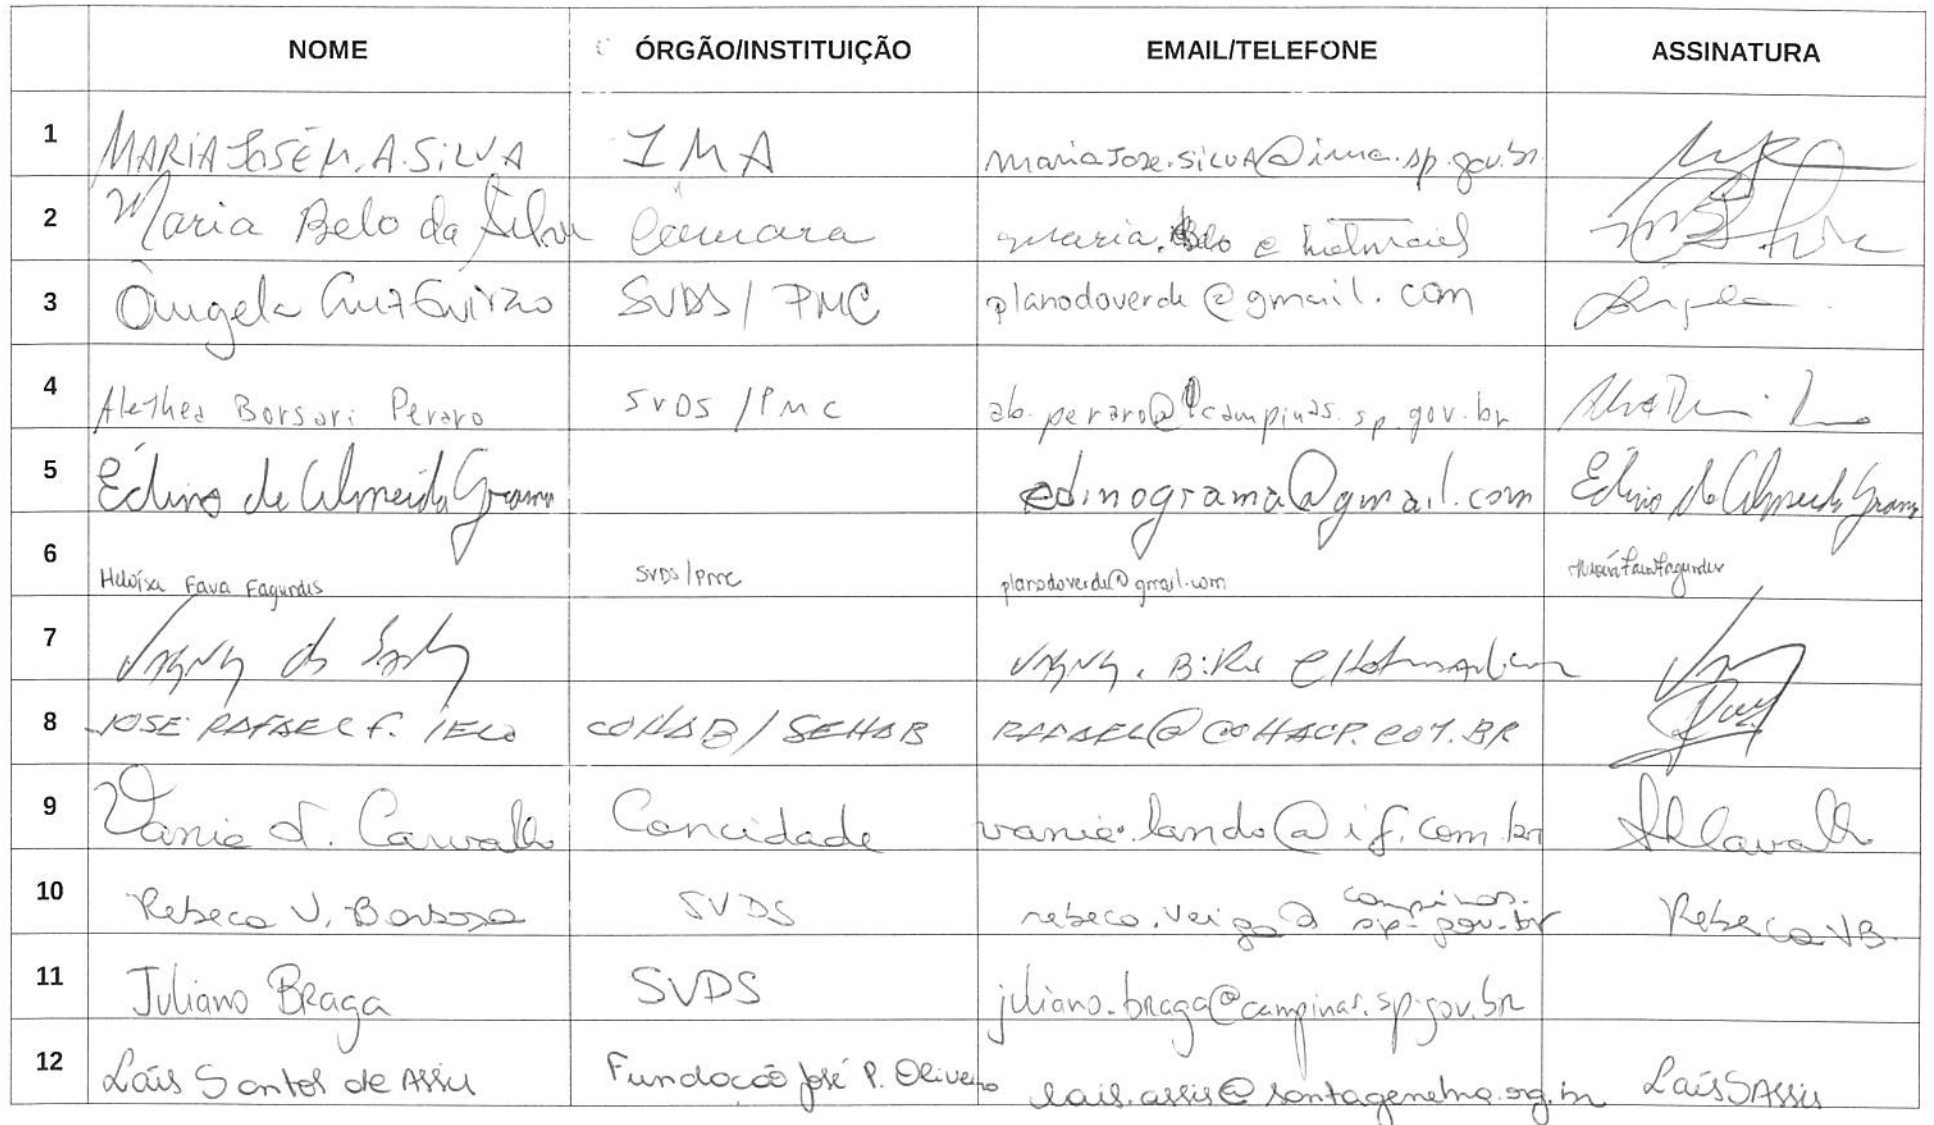 NOME ÓRGÃO/INSTITUIÇÃO EMAIL/TELEFONE ASSINATURA
1 MARIA JOSÉ M. A. SILVA IMA mariaJose.silvA@ima.sp.gov.br
2 Maria Belo da Silva Câmara maria.Belo e hotmail
3 Ângela Cruz Guirao SVDS/PMC planodoverde@gmail.com Ângela
4 Alethea Borsari Peraro SVDS/PMC ab.peraro@campinas.sp.gov.br
5 Édino de Almeida Grama edinograma@gmail.com Édino de Almeida Grama
6 Heloísa Fava Fagundes SVDS/PMC planodoverde@gmail.com Heloísa Fava Fagundes
7
8 JOSE RAFAEL F. COHAB/SEHAB
9 Vania L. Carvalho Concidade vania.lando@ Carvalho
10 Rebeca V. Barbosa SVDS rebeca.veiga@campinas.sp.gov.br Rebeca VB.
11 Juliano BRaga SVDS juliano.braga@campinas.sp.gov.br
12 Laís Santos de Assis Fundacão José P. Oliveira lais.assis@santagenebra.org.br Laís S Assis